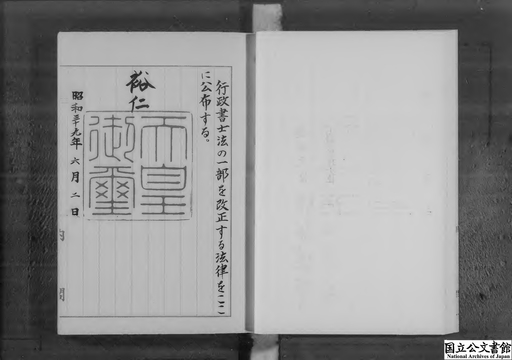 行政書士法の一部を改正する法律をここ
に公布する。
裕仁
天皇
御璽
昭和三十九年六月二日
内閣
国立公文書館
National Archives of Japan